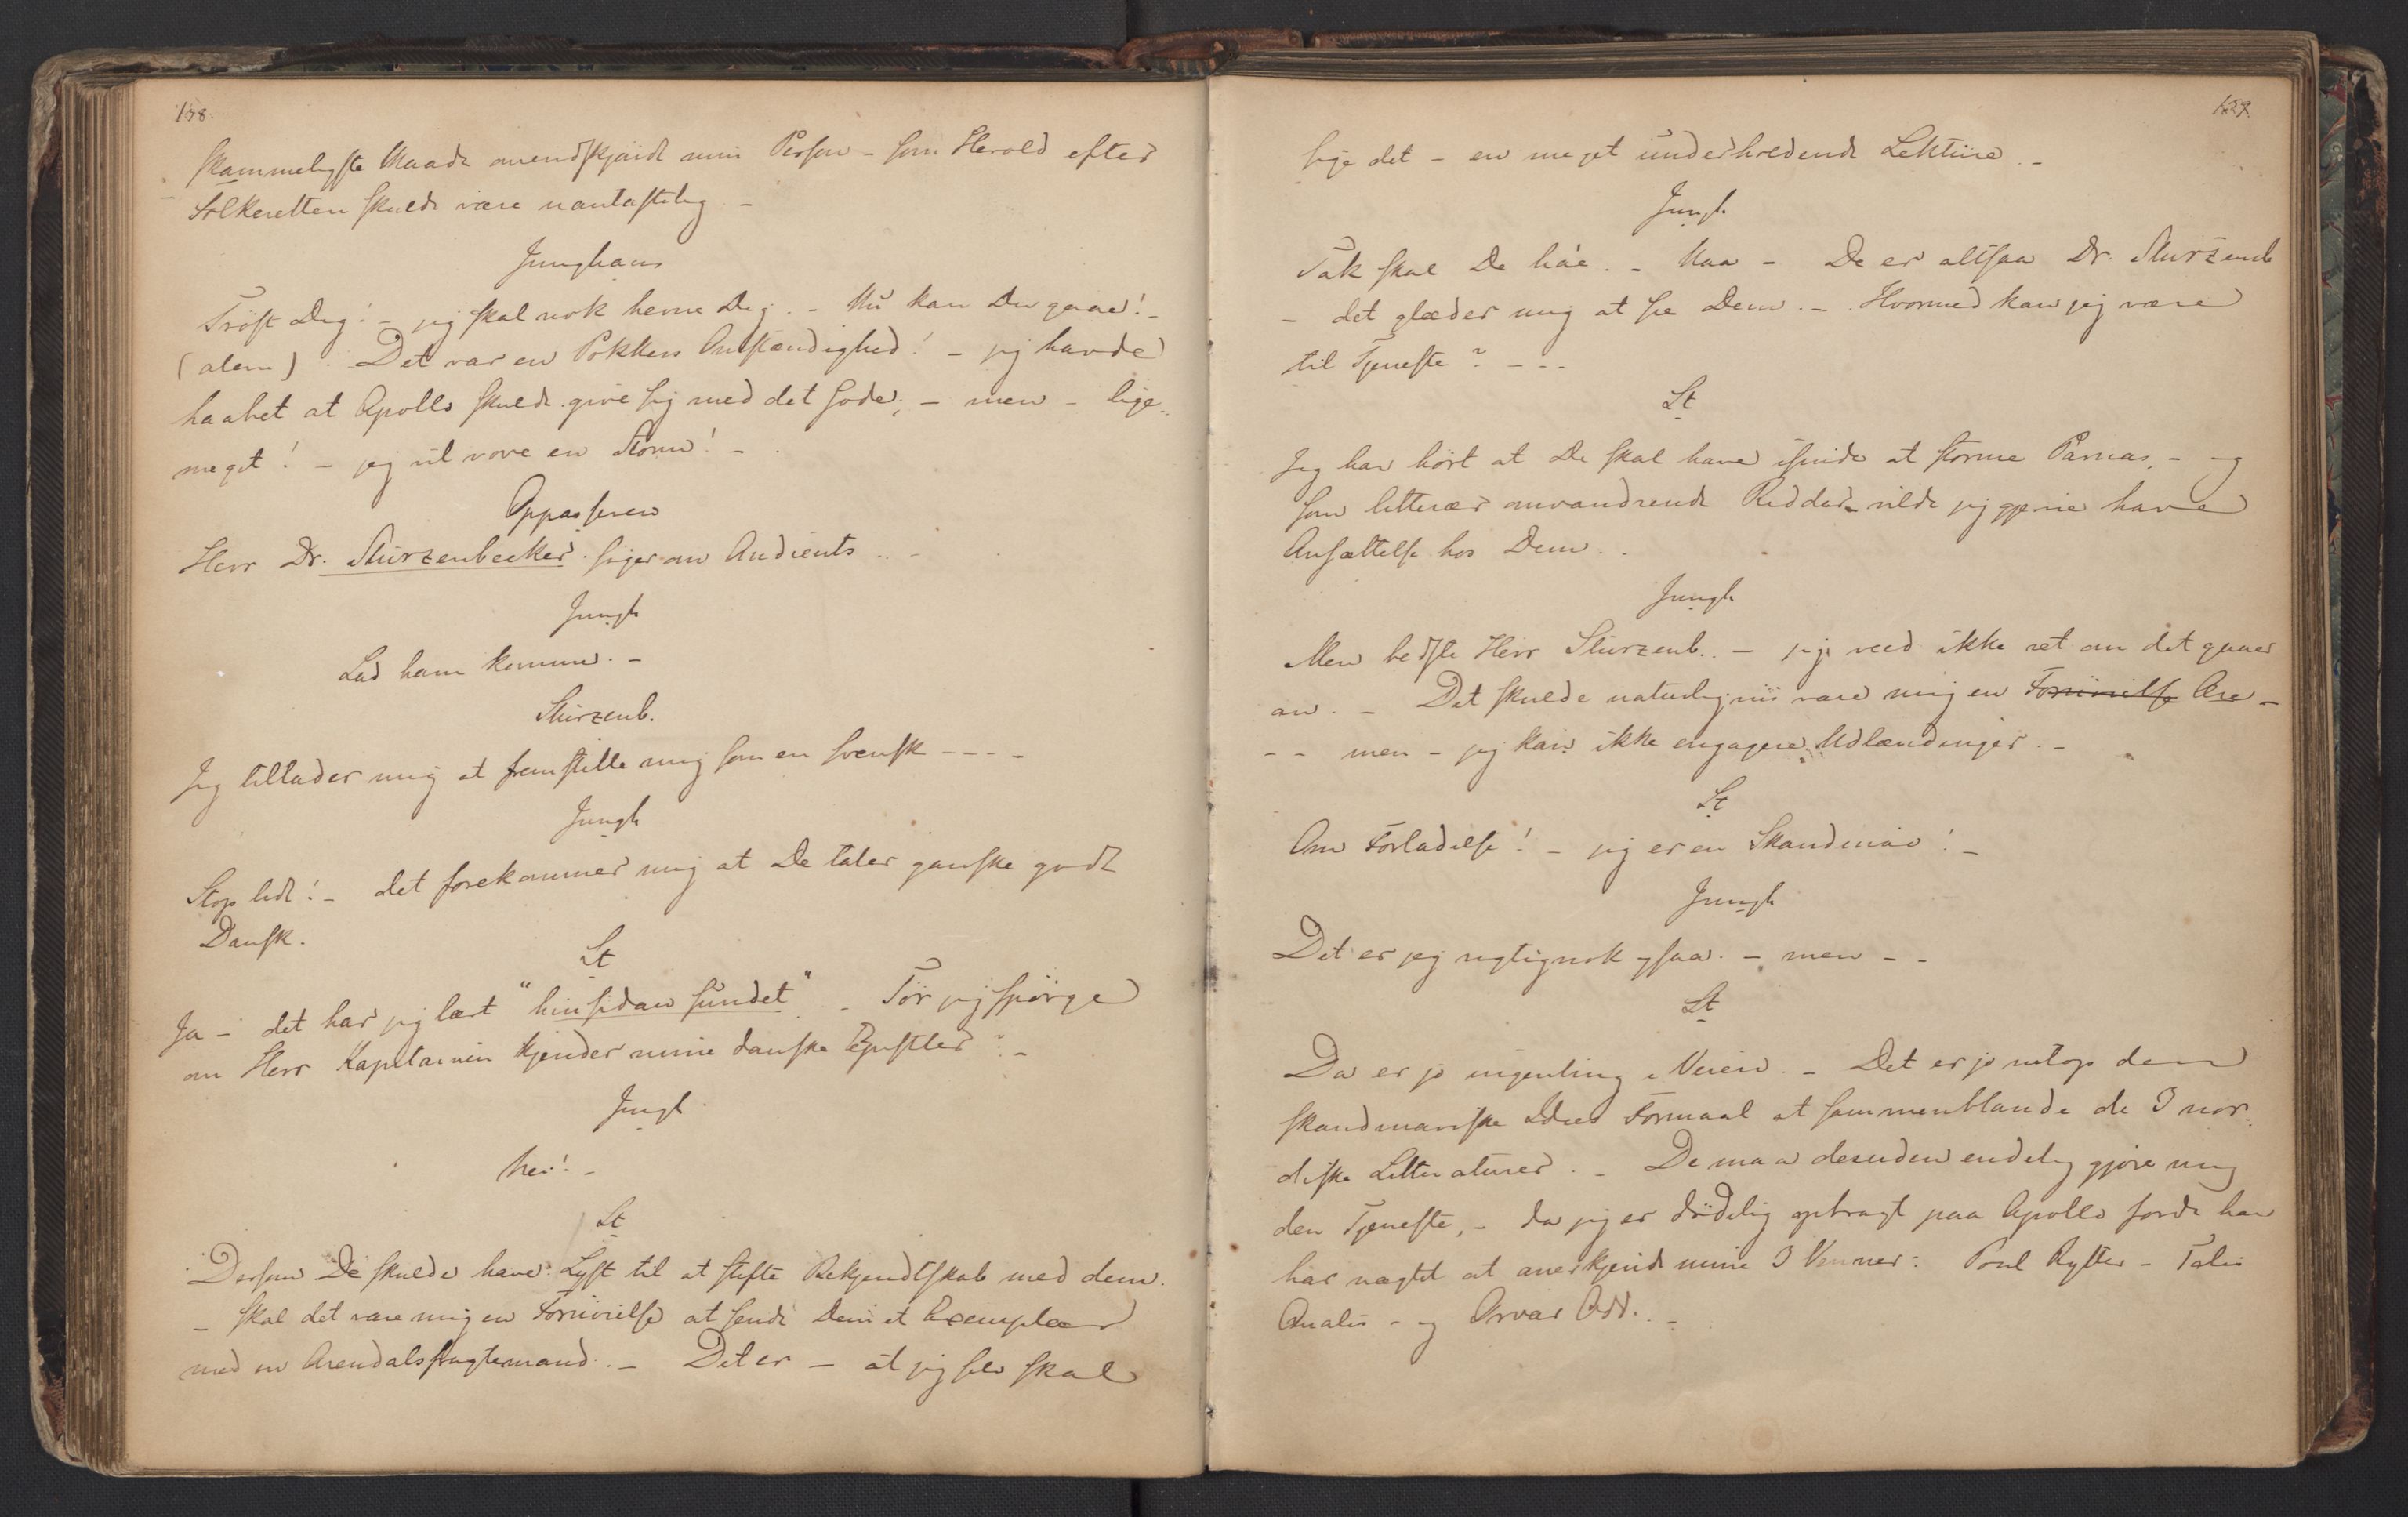 158.
skammeligste Maade anendskjøndt min Person - som Herold efter
Folkeretten skulde være uantastelig -
Junghans
Trøst Dig! - jeg skal nok hevne Dig. - Nu kan Du gaae! -
(alene). Det var en Pokkers Omstændighed! - jeg havde
haabet at Apollo skulde give sig med det Gode; - men - lige=
meget! - jeg vil vove en Storm! -
Oppasseren
Herr Dr. Sturzenbecker siger om Audients .. -
Jungh
Lad ham komme. -
Sturzenb.
Jeg tillader mig at fremstille mig som en Svensk - - - -
Jungh
Stop lidt! - det forekommer mig at De taler ganske godt
Dansk.
St
Ja - det har jeg lært "hinsidan sundet" - Tør jeg spørge
om Herr Kapitainen kjender mine danske Epistler? -
Jungh
Nei! -
St
Dersom De skulde have Lyst til at stifte Bekjendtskab med dem.
- skal det være mig en Fornøielse at sende Dem et Exemplar
med en Arendalsfragtemand. - Det er - at jeg selv skal
159
sige det - en meget underholdende Lekture. -
Jungh
Tak skal De ha'e. - Naa - De er altsaa Dr. Sturzenb
- det glæder mig at see Dem. - Hvormed kan jeg være
til Tjeneste? - - -
St
Jeg har hørt at De skal have isinde at storme Parnas, - og
som litterær omvandrende Ridder vilde jeg gjerne have
Ansættelse hos Dem. .
Jungh
Men bedste Herr Sturzenb.. - jeg veed ikke ret om det gaaer
an. - Det skulde naturligviis være mig en Fornøielse Ære -
- - men - jeg kan ikke engagere Udlændinger. -
St
Om Forladelse! - jeg er en Skandinav! -
Jungh
Det er jeg rigtignok ogsaa. - men - -
St
Da er jo ingenting i Veien. - Det er jo netop den
skandinaviske Idees Formaal at sammenblande de 3 nor=
diske Litteraturer. - De maa desuden endelig gjøre mig
den Tjeneste, - da jeg er dødelig opbragt paa Apollo fordi han
har nægtet at anerkjende mine 3 Venner: Poul Rytter - Talis
Qualis - og Orvar Odd. -